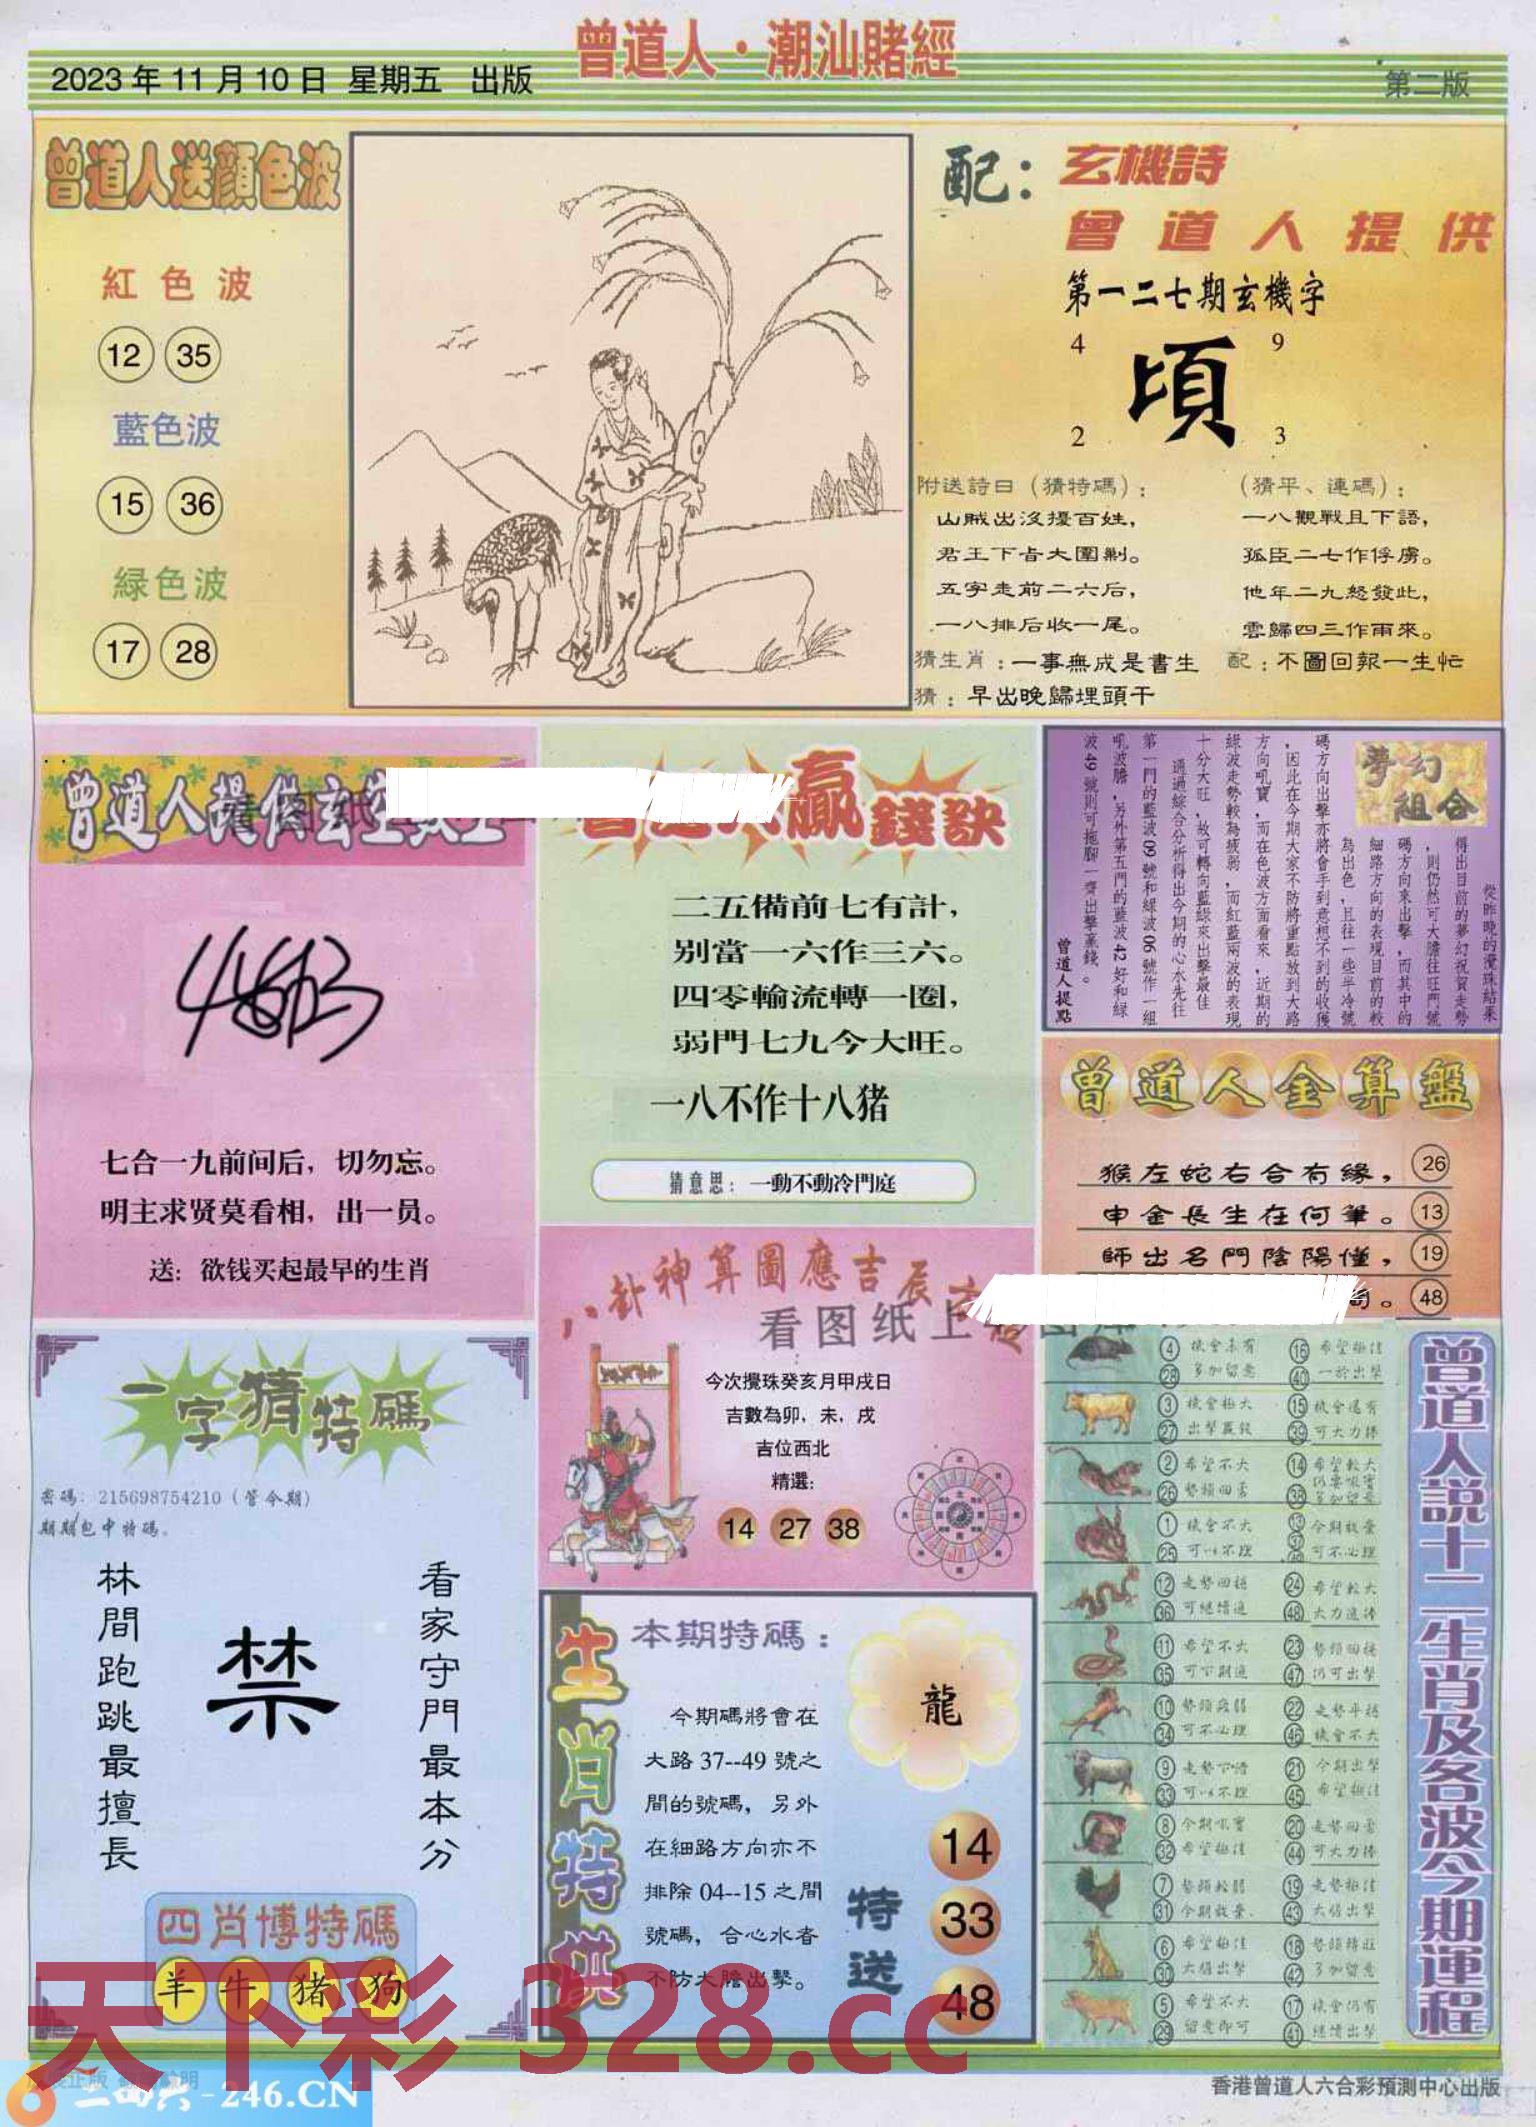 曾道人·潮汕賭經
2023年11月10日 星期五 出版
第二版
曾道人送顏色波
紅色波
12 35
藍色波
15 36
緑色波
17 28
配：
玄機詩
曾道人提供
第一二七期玄機字
4 9
頃
2 3
附送詩曰（猜特碼）：
山賊出沒擾百姓，
君王下旨大圍剿。
五字走前二六后，
一八排后收一尾。
（猜平、連碼）：
一八觀戰且下語，
孤臣二七作俘虜。
他年二九怒發此，
雲歸四三作雨來。
猜生肖：一事無成是書生
配：不圖回報一生忙
猜：早出晚歸埋頭干
七合一九前间后，切勿忘。
明主求贤莫看相，出一员。
送：欲钱买起最早的生肖
贏錢訣
二五備前七有計，
别當一六作三六。
四零輪流轉一圈，
弱門七九今大旺。
一八不作十八猪
猜意思：一動不動冷門庭
夢幻組合
從昨晚的攪珠結果
得出目前的夢幻祝賀走勢
，則仍然可大膽往旺門號
碼方向來出擊，而其中的
細路方向的表現目前的較
為出色，且往一些半冷號
碼方向出擊亦將會手到意想不到的收獲
，因此在今期大家不防將重點放到大路
方向吼寶，而在色波方面看來，近期的
綠波走勢較為疲弱，而紅藍兩波的表現
十分大旺，故可轉向藍綠來出擊最佳
通過綜合分析得出今期的心水先往
第一門的藍波09號和綠波06號作一組
吼波膽，另外第五門的藍波42好和綠
波49號則可拖腳一齊出擊贏錢。
曾道人提點
曾道人金算盤
猴左蛇右合有緣， 26
申金長生在何筆。 13
師出名門陰陽僅， 19
。 48
八卦神算圖應吉辰
看图纸上
今次攪珠癸亥月甲戌日
吉數為卯，未，戌
吉位西北
精選：
14 27 38
一字猜特碼
密碼：215698754210（管今期）
期期包中特碼。
林間跑跳最擅長
禁
看家守門最本分
四肖博特碼
羊 牛 猪 狗
生肖特供
本期特碼：
龍
今期碼將會在
大路37--49號之
間的號碼，另外
在細路方向亦不
排除04--15之間
號碼，合心水者
不防大膽出擊。
特送
14
33
48
曾道人説十二生肖及各波今期運程
4 機會未有 16 希望極佳
28 多加留意 40 一於出擊
3 機會極大 15 機會還有
27 出擊贏錢 39 可大力捧
2 希望不大 14 希望較大
26 勢頭回落 38
1 機會不大 13 今期放棄
25 可以不理 可不必理
12 走勢回穩 24 希望較大
36 可繼續追 48 大力追捧
11 希望不大 23 勢頭回穩
35 可下期追 47 仍可出擊
10 勢頭疲弱 22
34 可不必理 46 機會不大
9 21 今期出擊
33 可以不理 45 希望極佳
8 今期吼寶 20 走勢回落
32 希望極佳 44 可大力捧
7 勢頭較弱 19 走勢極佳
31 今期放棄 43 大膽出擊
6 希望極佳 18 勢頭轉旺
30 大膽出擊 42 多加留意
5 希望不大 17 機會仍有
29 留意即可 41 繼續出擊
天下彩 328.cc
二四六-246.CN
香港曾道人六合彩預測中心出版